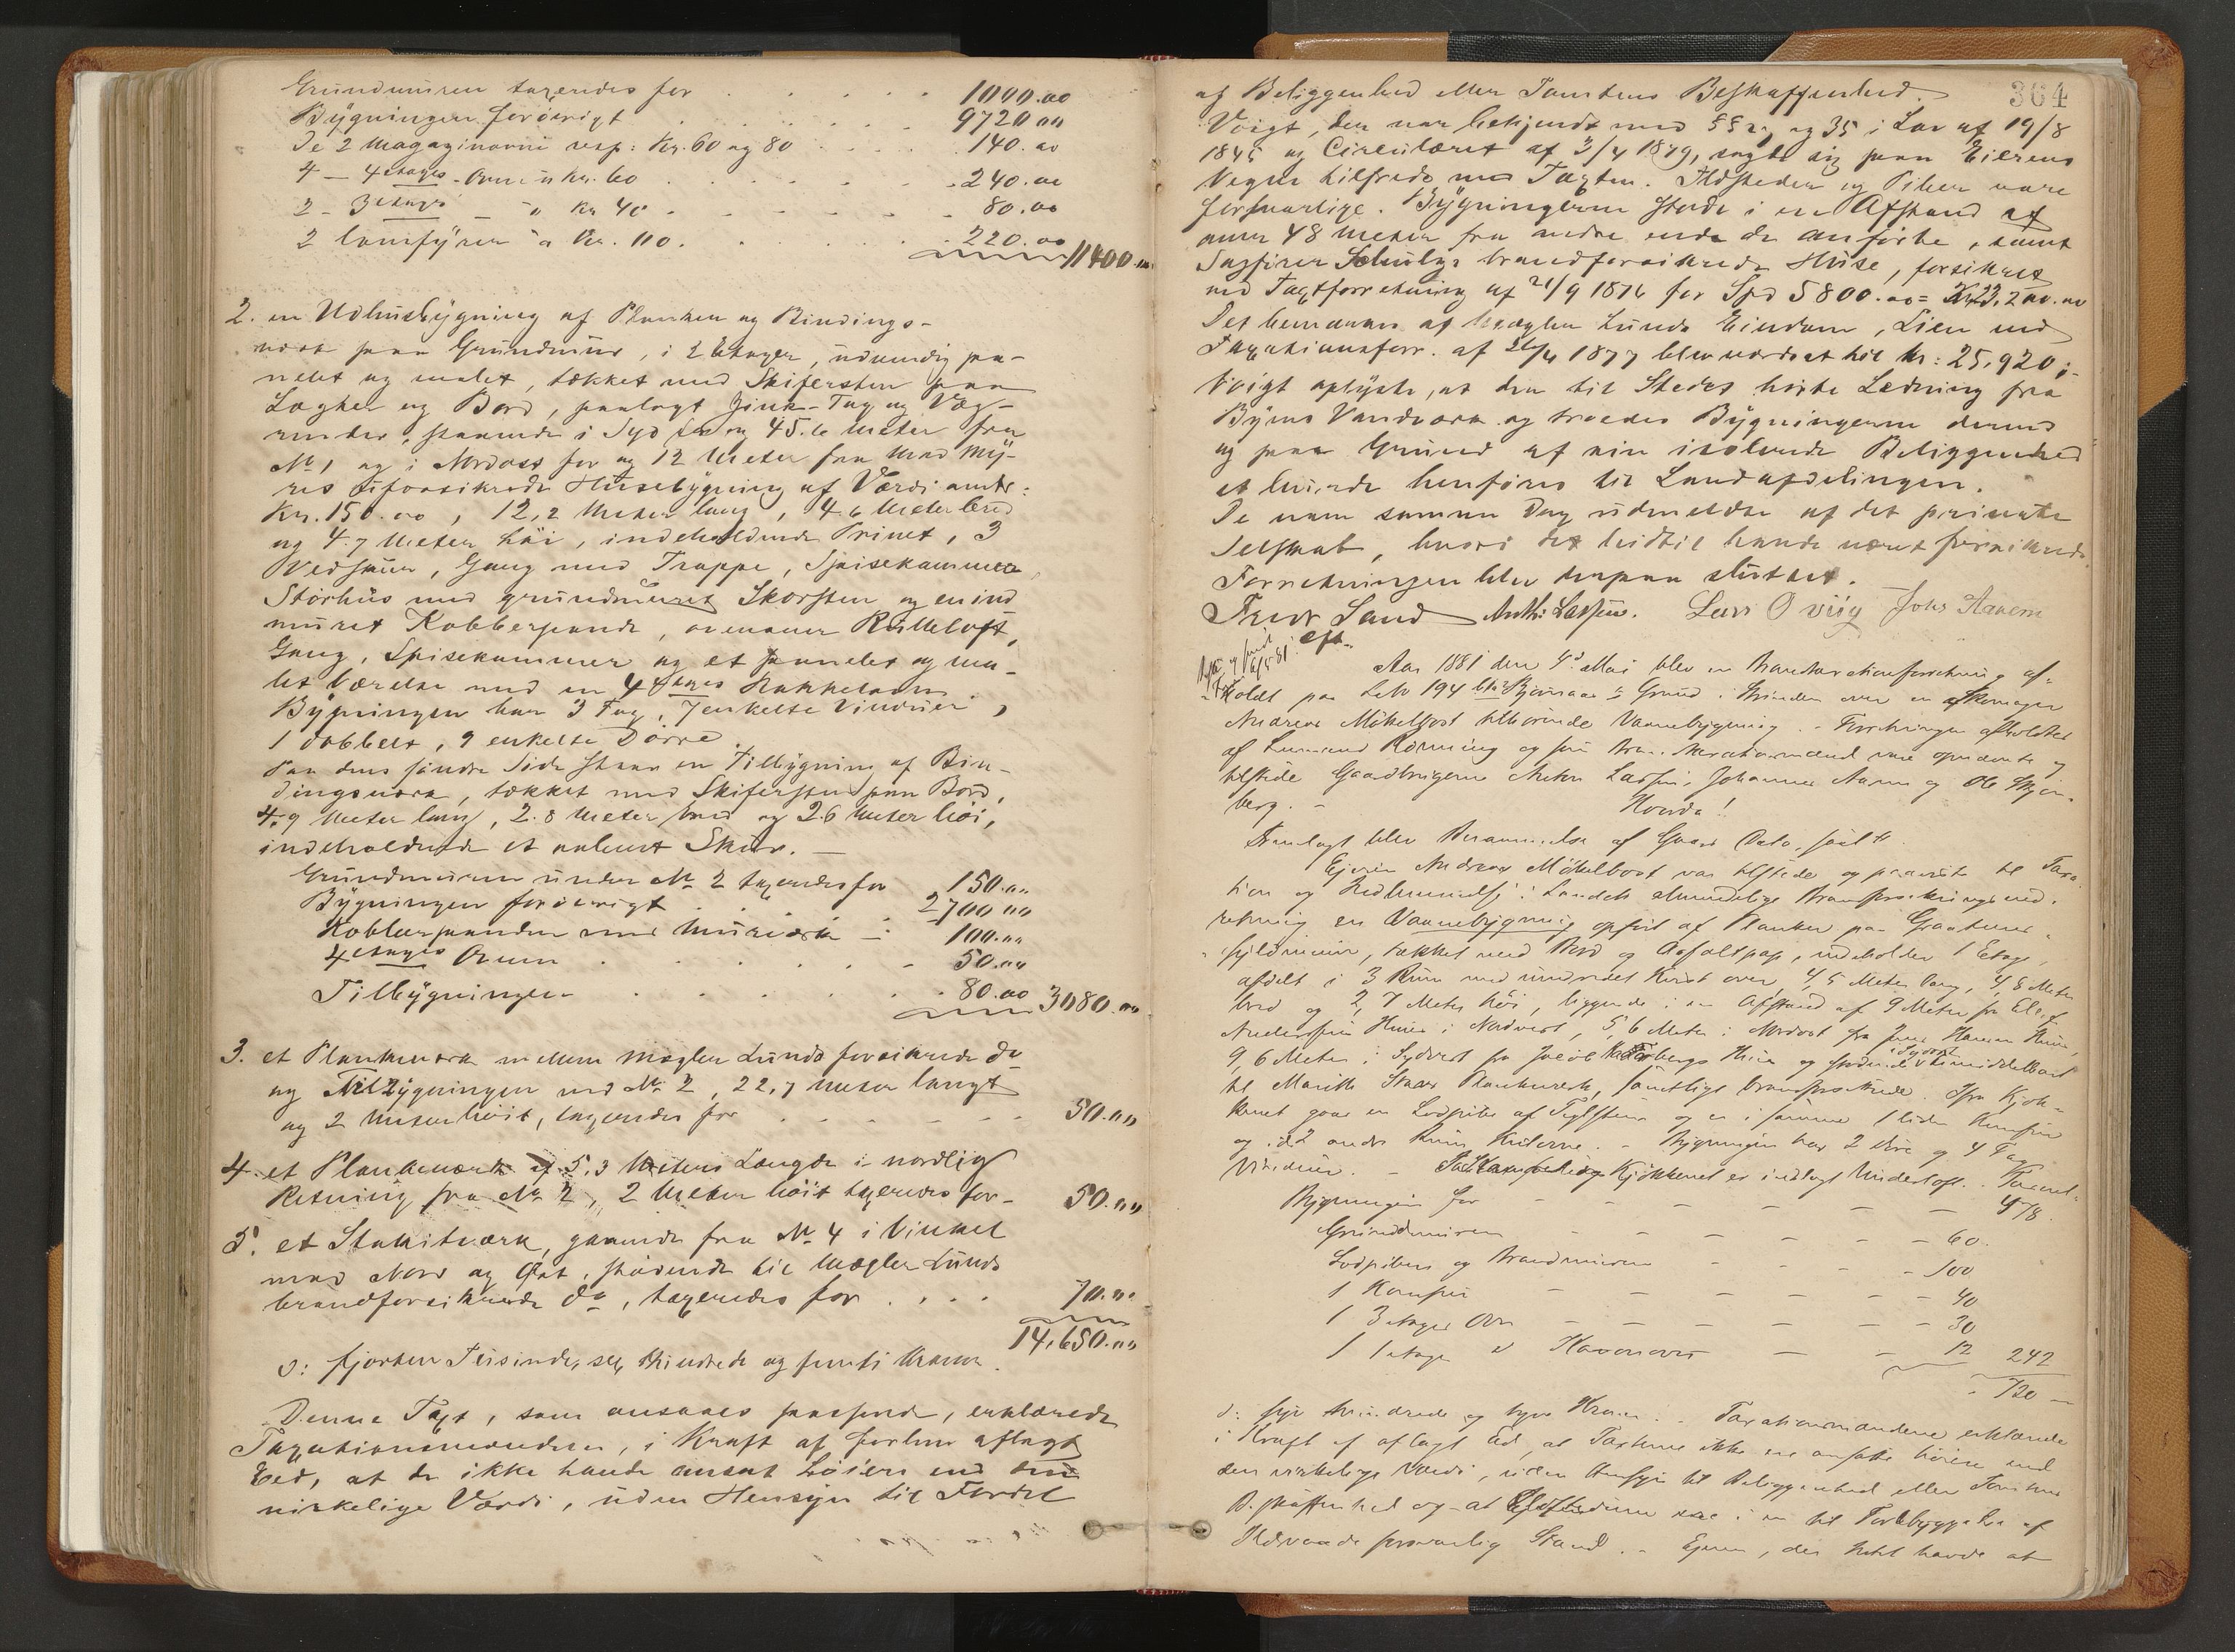 Grundmuren taxeredes for 1000.00
Bygningen forøvrigt 9720 00
De 2 Magazinovne resp: Kr. 60 og 80 140.00
4 - 4 etages - Ovne à Kr. 60 240.00
2 - 3 etages - " Kr 40 80.00
2 Comfyrer à Kr. 110. 220.00
11400.00
2. en Udhusbygning af Planker og Bindings-
værk paa Grundmur, i 2 Etager, udvendig pa-
nelet og malet, tækket med Skifersten paa
Lægter og Bord, paalagt Zink-Tag og Væg-
render, staaende i Syd for og 45.6 Meter fra
No 1 og i Nordost for og 12 Meter fra Mad My-
res uforsikrede Husebygning af Værdi
Kr. 150.00, 12,2 Meter lang, 4 6 Meter bred
og 4.7 Meter høi, indeholdende Privet, 3
Vedskur, Gang med Trappe, Spisekammer,
Størhus med grundmuret Skorsten og en ind
muret Kobberpande, ovenover Rulleloft,
Gang, Spisekammer og et panelet og ma-
let Værelse med en 4 etages Kakkelovn.
Bygningen har 3 Fag, 7 enkelte Vinduer,
1 dobbelt, 9 enkelte Dørre.
Paa dens søndre Side staar en Tilbygning af Bin-
dingsværk, tækket med Skifersten paa Bord,
4.9 Meter lang, 2.8 Meter bred og 2.6 Meter høi,
indeholdende et aabent Skur. -
Grundmuren under No 2 taxeredes for 150.00
Bygningen forøvrigt 2700 00
Kobberpanden med Murværk 100.00
4 etages Ovnen 50.00
Tilbygningen 80.00 3080.00
3. et Plankeværk mellem Mægler Lunds forsikrede do
og Tilbygningen ved No 2, 22,7 Meter langt
og 2 Meter høit, taxeredes for 50.00
4. et Plankeværk af 5,3 Meters Længde i nordlig
Retning fra No 2, 2 Meter høit taxeredes for - 50.00
5. et Stakitværk, gaaende fra No 4 i Vinkel
mod Nord og Øst, stødende til Mægler Lunds
brandforsikrede do, taxeredes for 70.00
14,650.00
ɔ: fjorten Tusinde, sex Hundrede og femti Kroner.
Denne Taxt, som ansaaes passende, erklærede
Taxationsmændene, i Kraft af forhen aflagt
Eed, at de ikke havde ansat høiere end den
virkelige Værdi, uden Hensyn til Fordel
364
af Beliggenhed eller Tomtens Beskaffenhed.
Voigt, der var bekjendt med §§ og 35 i Lov af 19/8
1845 og Circulæret af 3/4 1879, sagde sig paa Eierens
Vegne tilfreds med Taxten. Ildsteder og Piber vare
forsvarlige. Bygningerne stode i en Afstand af
over 48 Meter fra andre end de anførte, samt
Sagfører Schulz's brandforsikrede Huse, forsikret
ved Taxtforretning af 21/9 1876 for Spd 5800.00 = Kr 23,200.00
Det bemærkes at Mægler Lunds Eiendom, Lien ved
Taxationsforr. af 26/4 1877 blev vurderet til Kr: 25,920;-
Voigt oplyste, at den til Stedet hørte Ledning fra
Byens Vandværk og troedes Bygningerne derved
og paa Grund af sin isolerede Beliggenhed
at kunde henføres til Landafdelingen.
De vare samme Dag udmeldte af det private
Selskab, hvori det hidtil havde været forsikrede.
Forretningen blev derpaa sluttet.
Fredr Sand Anth: Lassen. Lars Oviig Johs Aanem
eft.
Aar 1881 den 4de Mai blev en Brandtaxationsforretning af-
holdt paa Lebo 194 bta Bjørnaae's Grund i Strinden over en Skomager
Andreas Møkelbost tilhørende Vaanebygning. - Forretningen afholdtes
af Lensmand Rønning og som Brandtaxationsmænd vare opnævnte og
tilstede Gaardbrugerne Anton Lassen, Johannes Aanem og Ole Skjøn-
berg. - Hvorda!
Fremlagt blev Berammelse af Gaars Dato, saal.
Ejeren Andreas Møkelbost var tilstede og paaviste til Taxa-
tion og Indlemmelse i Landets almindelige Brandforsikringsind-
retning en Vaanebygning opført af Planker paa Graastens-
fyldmur, tækket med Bord og Asfaltpap, indeholder 1 Etage,
afdelt i 3 Rum med uindredet Kvist over, 4,5 Meter lang, 4,5 Meter
bred og 2,7 Meter høi, liggende i en Afstand af 9 Meter fra Elef
Andersens Huus i Nordvest, 5,6 Meter i Nordost fra Jens Hansen Huus,
9,6 Meter i Sydvest fra Jacob Forbergs Huus og stødende i Sydost umiddelbart
til Marith Staas Plankeværk, samtlige brandforsikrede. Fra Kjøk-
kenet gaar en Lodpibe af Teglsten og er i samme 1 liden Komfur
og i de 2 andre Rum Kulovne. - Bygningen har 2 Døre og 4 Fag
Vinduer. - Kjøkkenet er indlagt Underloft. -
Bygningen for 478
Grundmuren 60.
Lodpiben og Brandmuren 100
1 Komfur 40
1 3 etages Ovn 30
1 1 etages do Kavonovn 12 242
720 -
ɔ: syv Hundrede og tyve Kroner. - Taxationsmændene erklærede
i Kraft af aflagt Ed, at Taxterne ikke ere ansatte høiere end
den virkelige Værdi, uden Hensyn til Beliggenhed eller Tomtens
Beskaffenhed og at Ildstederne ere i en til Forebyggelse af
Ildsvaade forsvarlig Stand. - Ejeren, der intet havde at